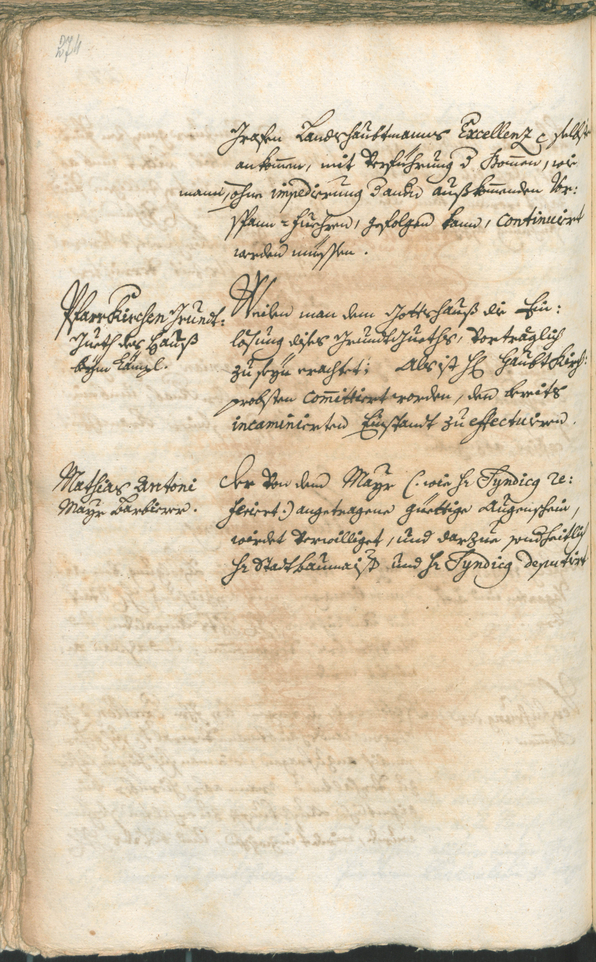 274
Grafen Landtshaubtmanns Excellenz selbst
ankommen, mit Verführung d Bömen, wie
mann, ohne impedierung d anhin außkommenden Vor:
spann=fuehren, gefolgen kann, continuirt
werden müssen.
PfarrKirchen Grundt:
Gueth des Hauß
beym Lämpl.
Weilen man dem Gottshauß die Ein:
lösung dises Grundt Gueths, Vorträglich
zu seyn erachtet; Als ist H Haubt Kirch:
probsten committiert worden, den bereits
incaminierten Einstandt zu effectuiren.
Mathias Antoni
Mayr Barbierer.
Der von dem Mayr (: wie H Syndicg re:
feriert :) angetragene güettige Augenschein,
wirdet verwilliget, und darzue
H Stattbaumaist und H Syndicg deputirt